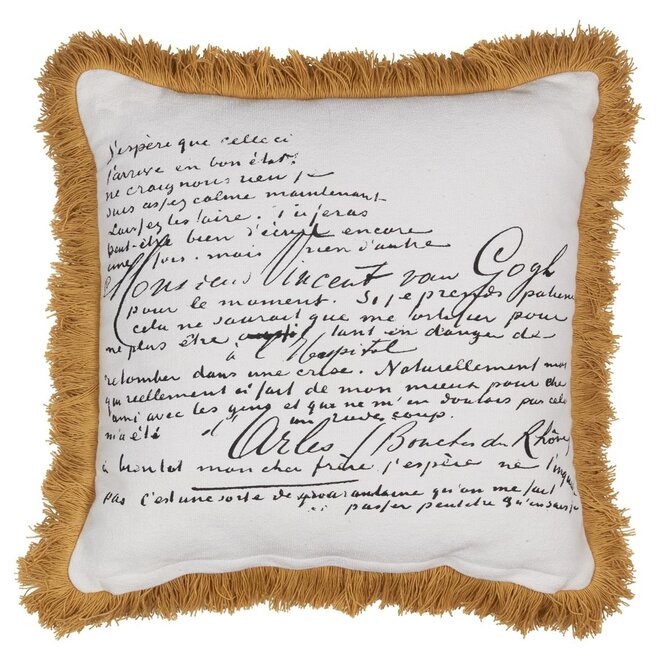 J'espère que celle ci
t'arrive en bon état.
ne craignons rien je
suis assez calme maintenant
Laissez les faire. Tu feras
peut-être bien d'écrire encore
une fois. mais rien d'autre
Monsieur Vincent van Gogh
pour le moment. Si je prends patience
cela ne saurait que me fortifier pour
ne plus être tant en danger de
à l'Hospital
retomber dans une crise. Naturellement moi
qui réellement ai fait de mon mieux pour être
ami avec les gens et que ne m'en doutais pas cela
m'a été un rude coup.
d'Arles (Bouches du Rhône)
à bientot mon cher frère j'espère ne t'inquiète
pas c'est une sorte de quarantaine qu'on me fait
passer peut être